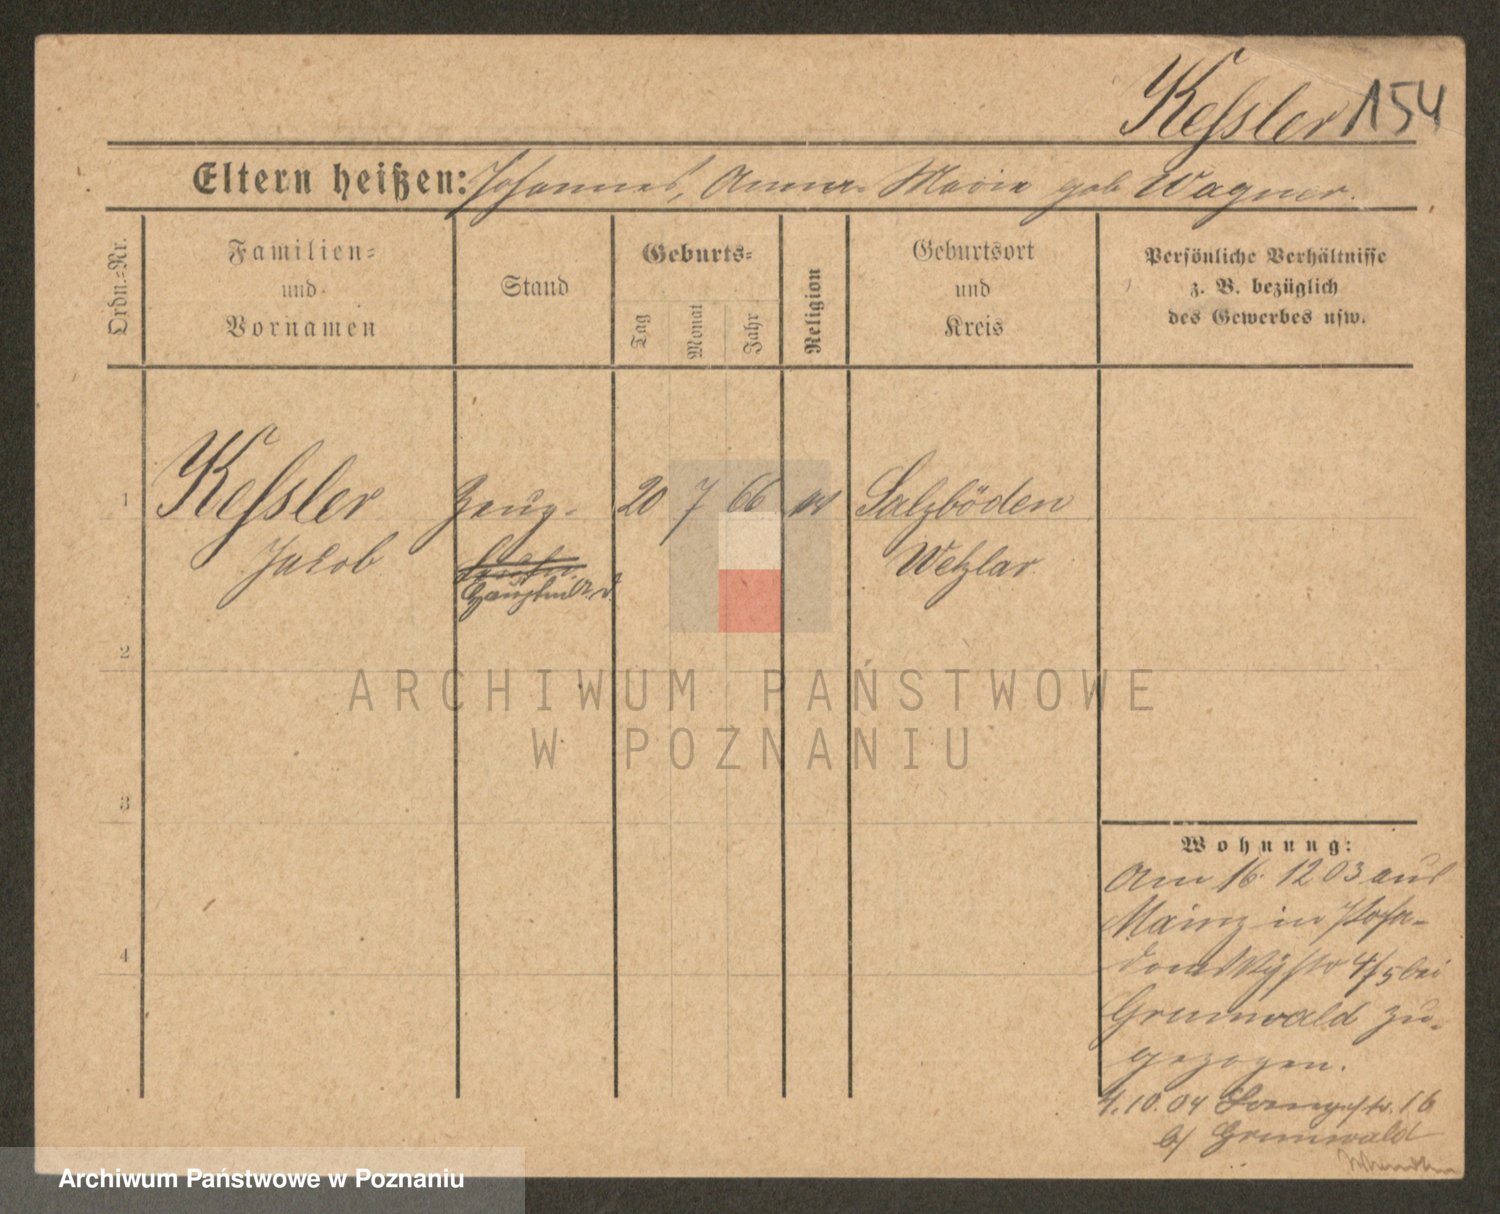 Keſsler 154
Eltern heißen: Johannes, Anna Marie geb Wagner.
Ordn.=Nr.
Familien=
und
Vornamen
Stand
Geburts=
Tag
Monat
Jahr
Religion
Geburtsort
und
Kreis
Persönliche Verhältnisse
z. B. bezüglich
des Gewerbes usw.
1 Keſsler Zeug- 20 7 66 Salzböden
Jakob Wetzlar
Hauptm
2
ARCHIWUM PAŃSTWOWE
W POZNANIU
3
Wohnung:
Am 16. 12 03 aus
Mainz in Posa-
dowskystr 4/5 bei
4
Grunwald zu-
gezogen.
4.10.04 Langestr. 16
b/ Grunwald
Archiwum Państwowe w Poznaniu